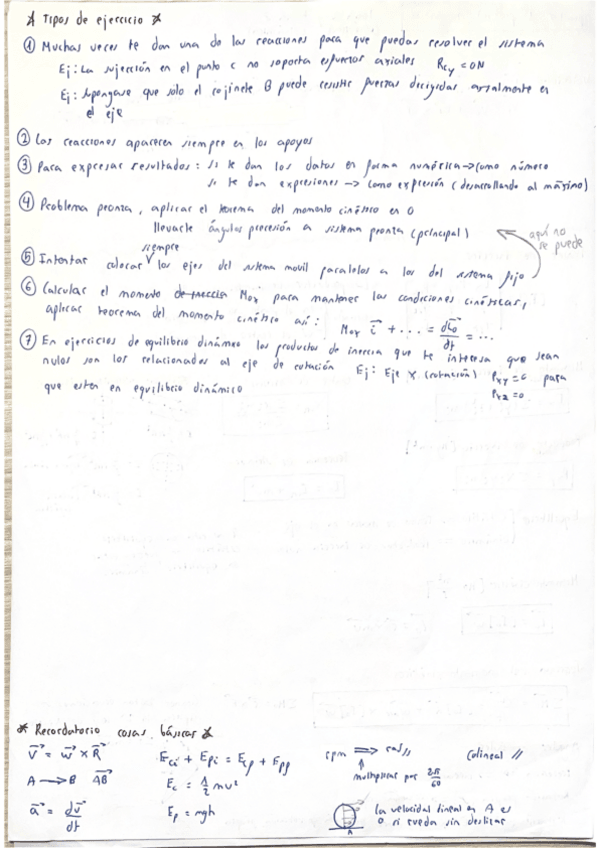 * Tipos de ejercicio *
① Muchas veces te dan una de las reacciones para que puedas resolver el sistema
Ej: La sujección en el punto C no soporta esfuerzos axiales R_cy = 0N
Ej: Supongase que solo el cojinete B puede resistir fuerzas dirigidas axialmente en
el eje
② Las reacciones aparecen siempre en los apoyos
③ Para expresar resultados: si te dan los datos en forma numérica → como número
si te dan expresiones → como expresión (desarrollando al máximo)
④ Problema peonza, aplicar el teorema del momento cinético en O
llevarle ángulos precesión a sistema peonza (principal)
aquí no
se puede
siempre
⑤ Intentar colocar los ejes del sistema movil paralelos a los del sistema fijo
⑥ Calcular el momento Mox para mantener las condiciones cinéticas,
aplicar teorema del momento cinético así: Mox i⃗ + ... = dL⃗o/dt = ...
⑦ En ejercicios de equilibrio dinámco los productos de inercia que te interesa que sean
nulos son los relacionados al eje de rotación Ej: Eje X (rotación) Pxy = 0 para
que esten en equilibrio dinámico Pxz = 0
* Recordatorio cosas básicas *
v⃗ = w⃗ x R⃗ Eci + Epi = Ecf + Epf rpm ⟹ rad/s Colineal //
A → B AB⃗ Ec = 1/2 mv² multiplicar por 2π/60
a⃗ = dv⃗/dt Ep = mgh A La velocidad lineal en A es
0 si rueda sin deslizar